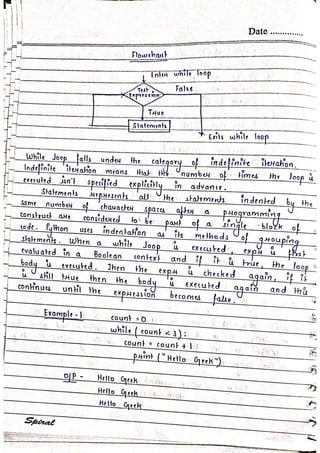 Date ..............
Flowchart
Enter while loop
Test
Expression
False
TRUE
Statements
Exits while loop
While loop falls under the category of indefinite iteration.
Indefinite iteration means that the number of times the loop is
executed isn't specified explicitly in advance.
Statements represents all the statements indented by the
same number of character spaces after a programming
construct are considered to be part of a single block of
code. Python uses indentation as its methods of grouping
statements. When a while loop is executed, expr is first
evaluated in a Boolean context and if it is true, the loop
body is executed. Then the expr is checked again, if it
is still true then the body is executed again and this
continues until the expression becomes false.
Example-1
count = 0
while (count < 3):
count = count + 1
print ("Hello Geek")
O/P - Hello Geek
Hello Geek
Hello Geek
Spiral